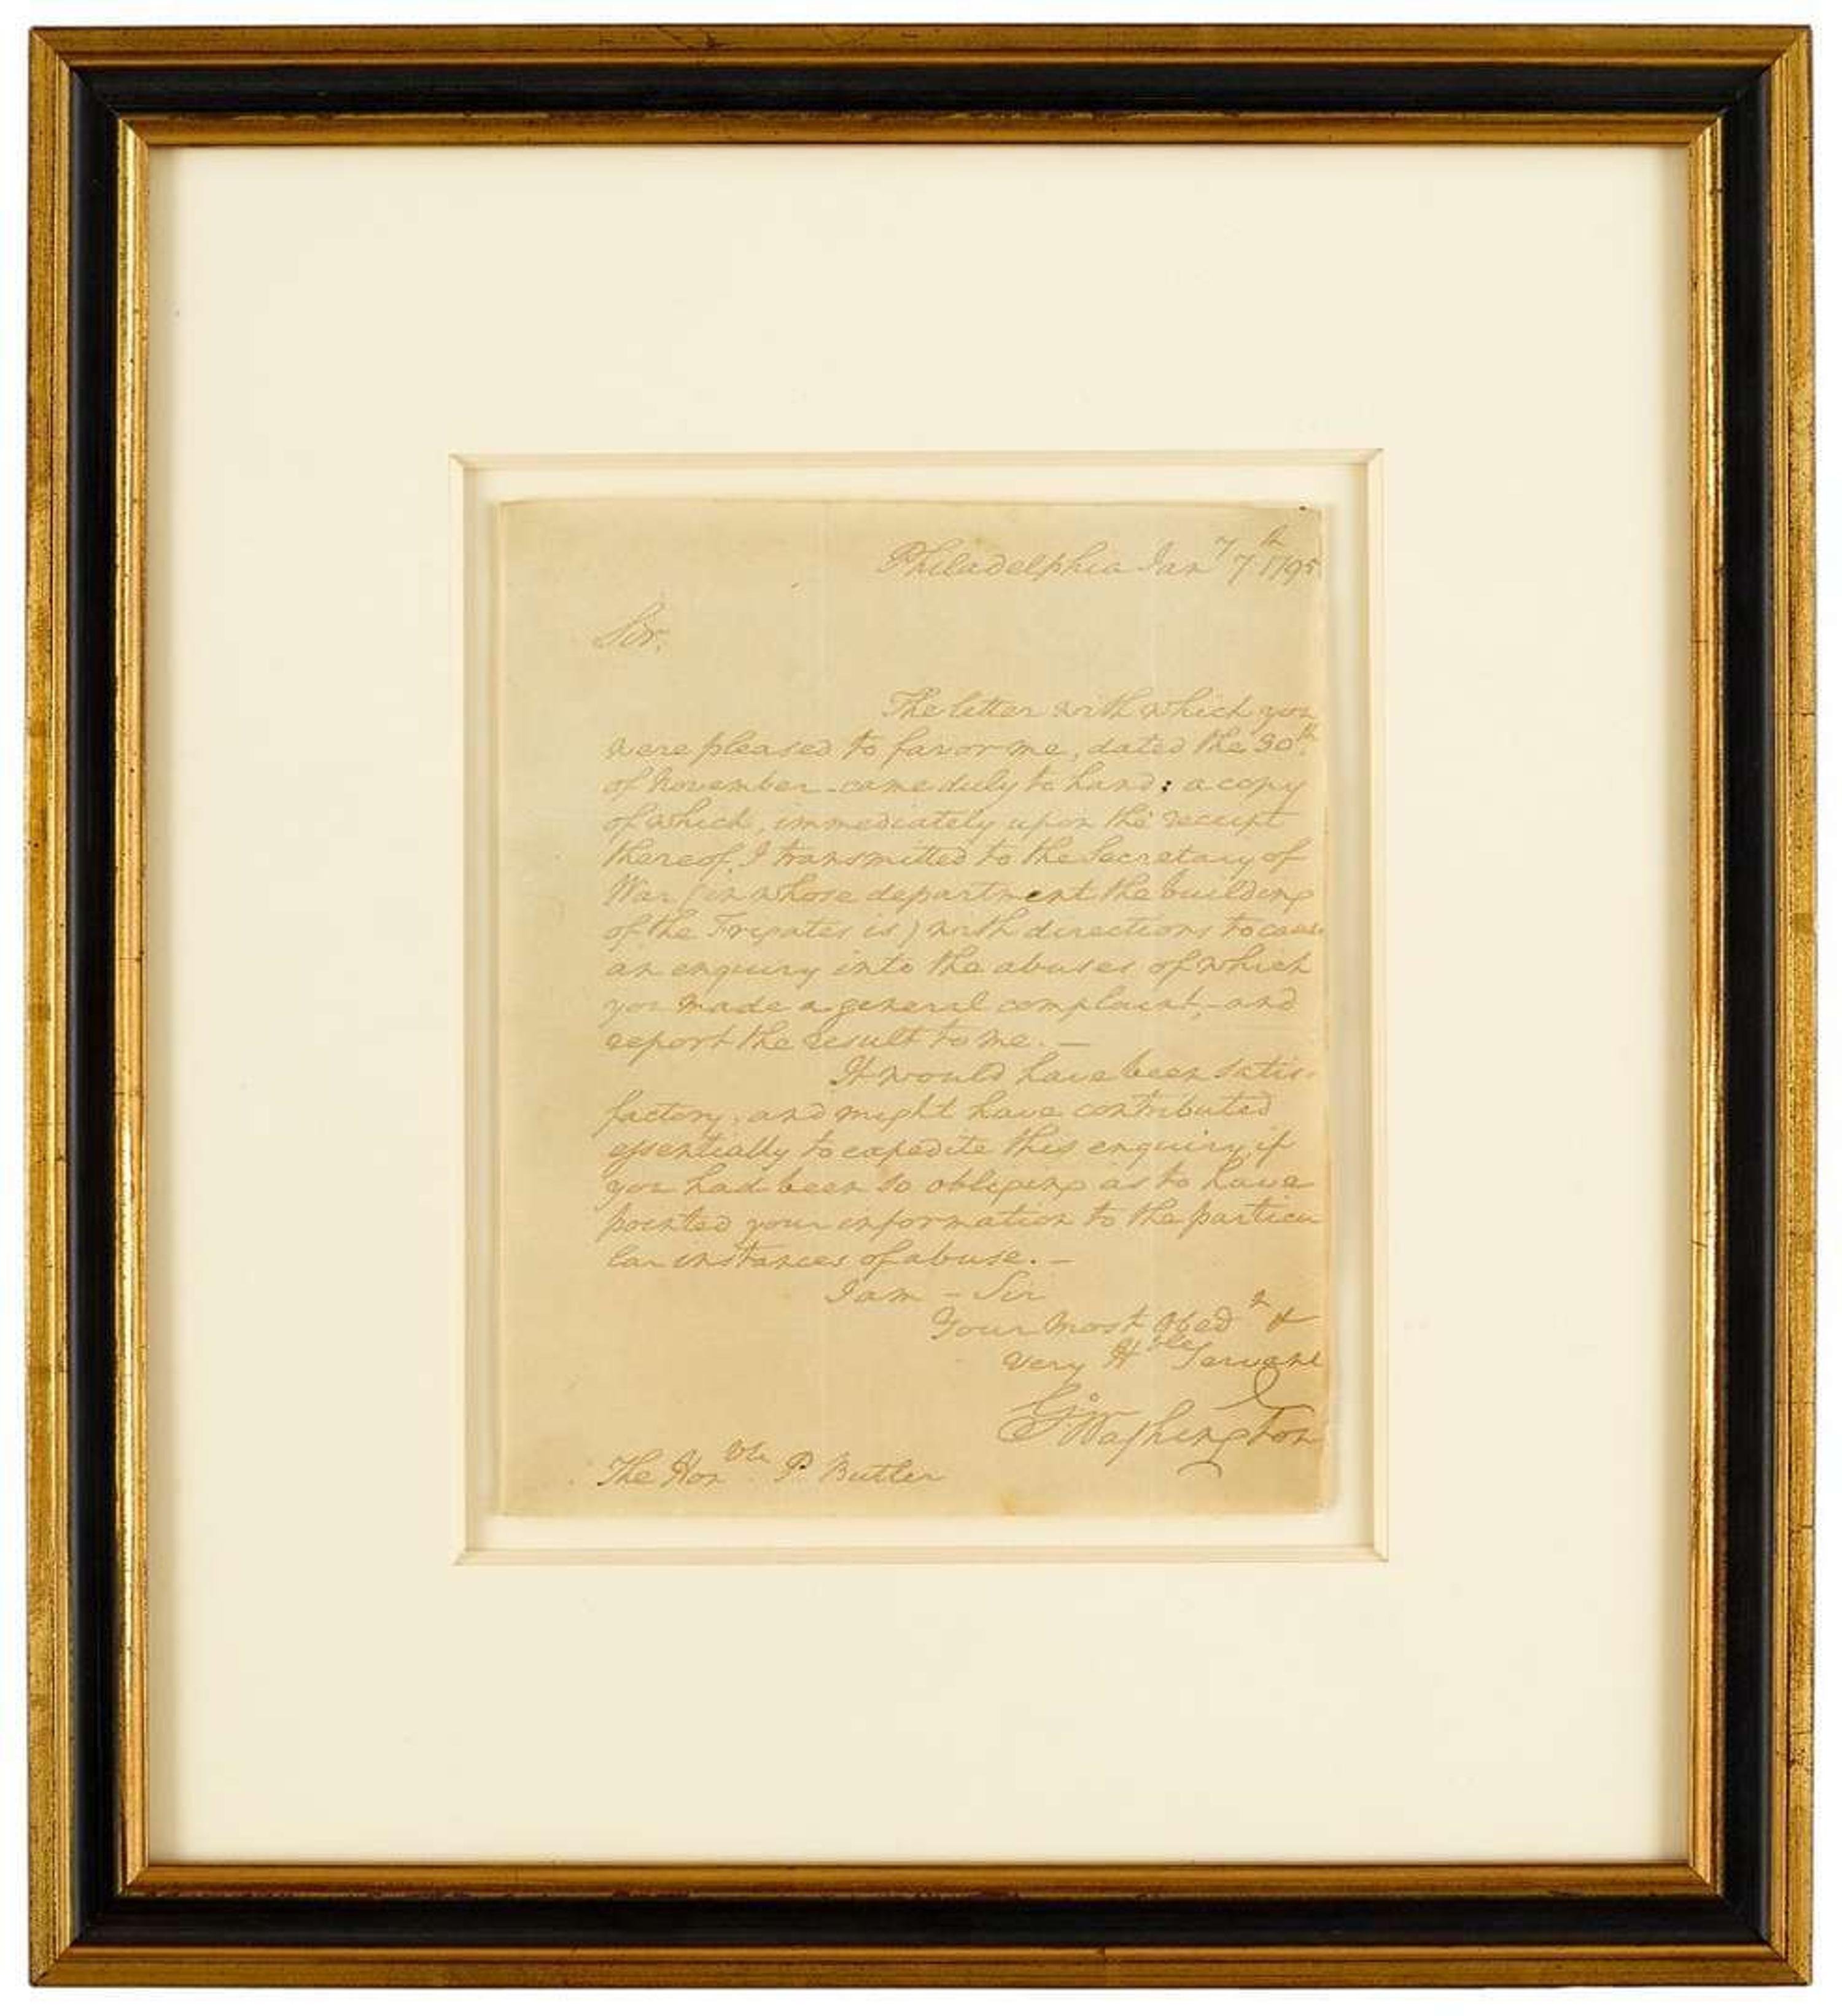 Philadelphia Jany 7th 1795
Sir,
The letter with which you
were pleased to favor me, dated the 30th
of November - came duly to hand: a copy
of which, immediately upon the receipt
thereof, I transmitted to the Secretary of
War (in whose department the building
of the Frigates is) with directions to cause
an enquiry into the abuses of which
you made a general complaint, - and
report the result to me. —
It would have been satis-
factory, and might have contributed
essentially to expedite this enquiry, if
you had been so obliging as to have
pointed your information to the particu
lar instances of abuse. —
I am - Sir
Your most Obedt &
very Hble Servant
Go: Washington
The Honble P. Butler